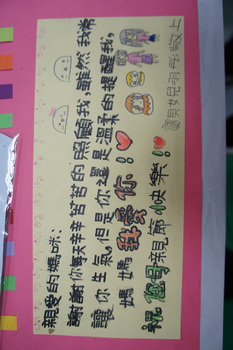 親愛的媽咪：
謝謝你每天辛辛苦苦的照顧我，雖然我常
讓你生氣，但是你還是溫柔的提醒我，
媽媽我愛你！
祝您母親節快樂！
寶貝女兒羽敬上